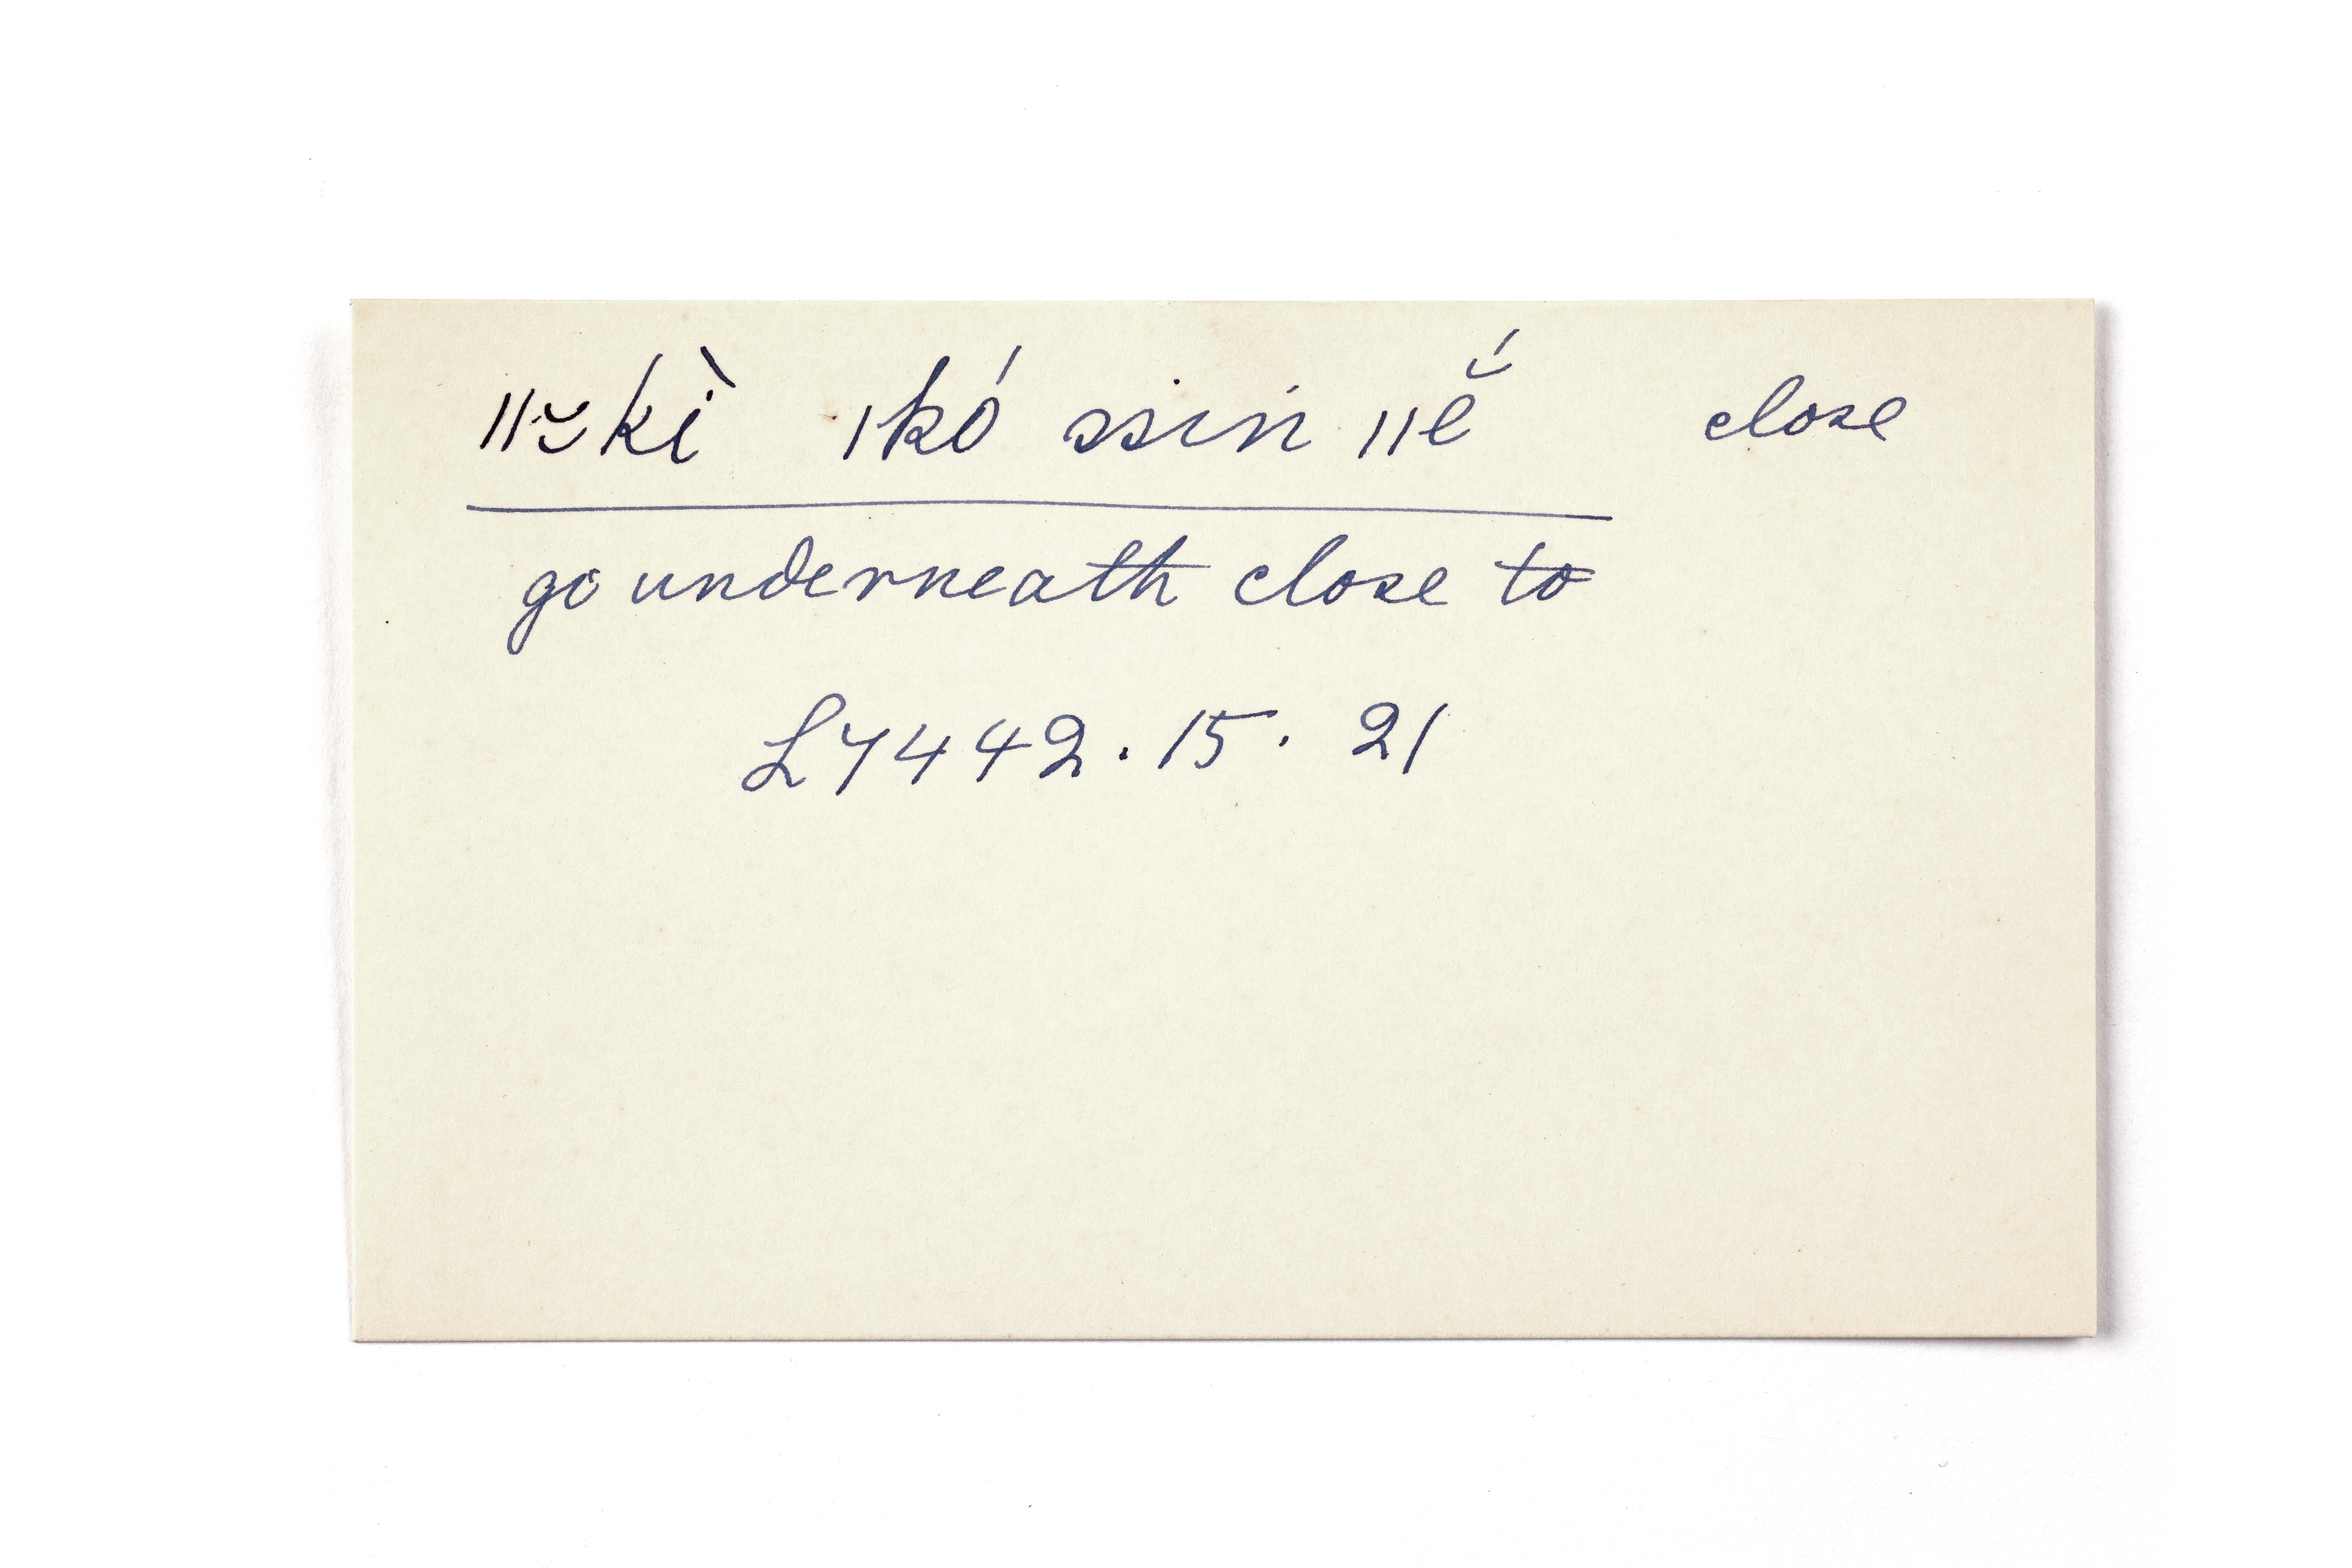 ||ᵕ̰kì |kó ssin ||ĕ́ close
go underneath close to
L7442.15.21